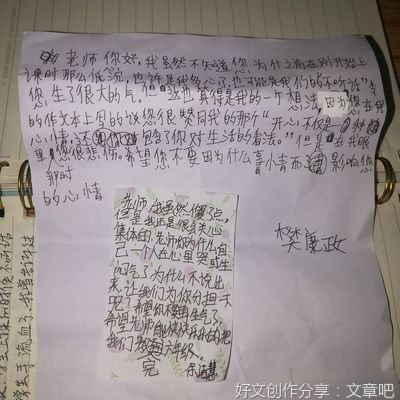 老师你好，我虽然不知道您为什么刚开始上
课时那么低沉，也许是我多心了，也可能是我们的不听话"令
您生了很大的气。但这也算得是我的一个想法，因为您在我
的作文本上写的话您很赞同我的那个"开心不仅是一种
心情，还包含了你对生活的看法。"但是在我眼
里您很悲伤。希望您不要因为什么事情而影响您
那时
的心情
樊廉政
老师，我虽然傻了点，
但是我还是很关心
集体的，老师你为什么自
己一个人在心里哭或生
闷气了为什么不说出
来，让我们为你分担一下
呢？希望你不要再生气了
希望老师能快快乐乐的把
我们教到六年级。
完
好文创作分享：文章吧